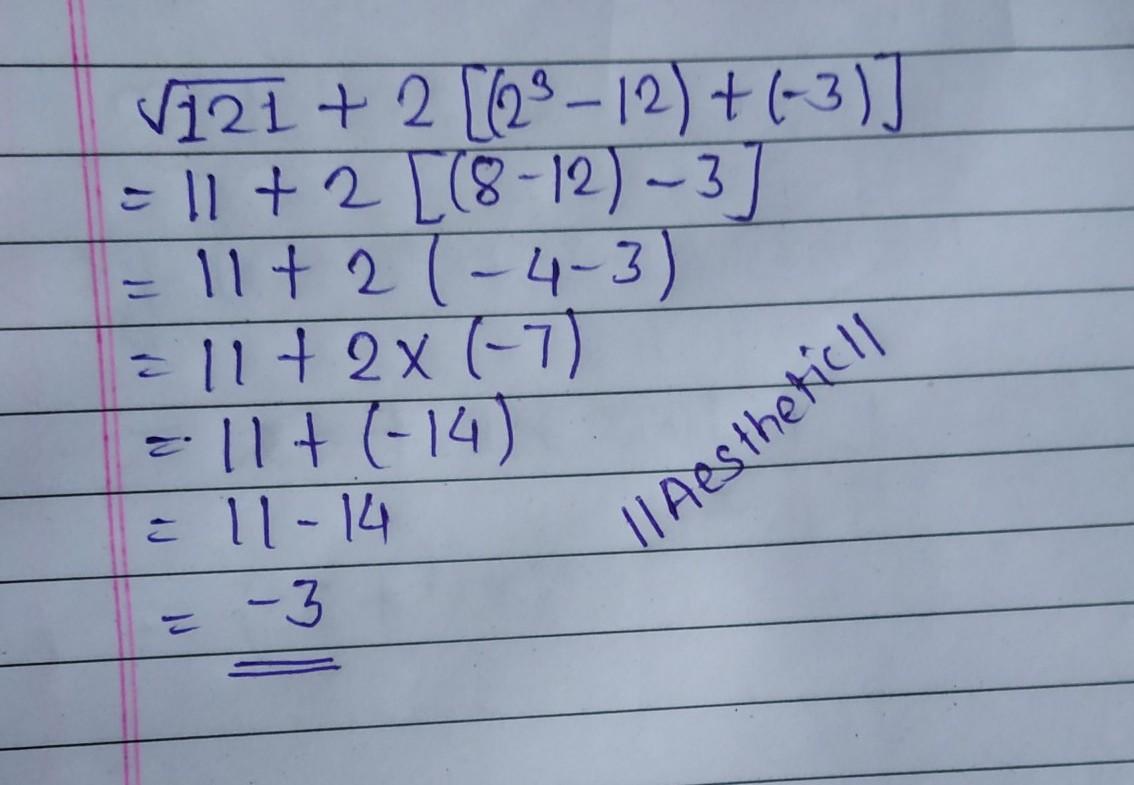 √121 + 2 [(2³ – 12) + (-3)]
= 11 + 2 [(8-12) – 3]
= 11 + 2 (-4-3)
= 11 + 2 x (-7)
= 11 + (-14)
= 11 - 14
= -3
||Aesthetic||